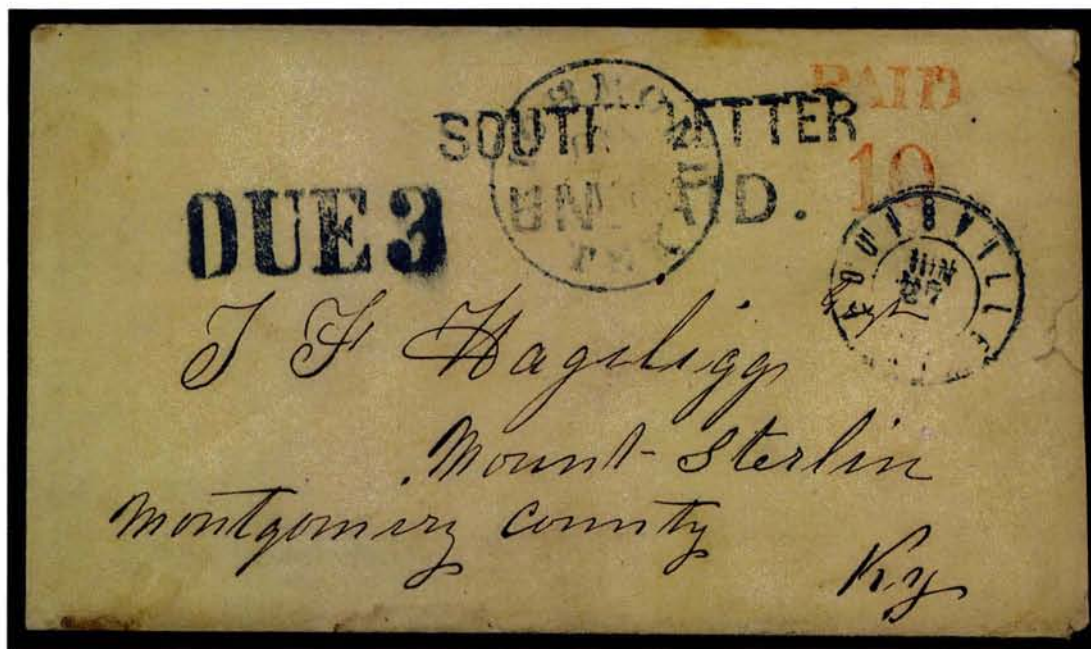 PAID
SOUTH LETTER
10
UNPAID.
DUE 3
LOUISVILLE
T F Hagiligg
Mount Sterlin
Montgomery County
Ky